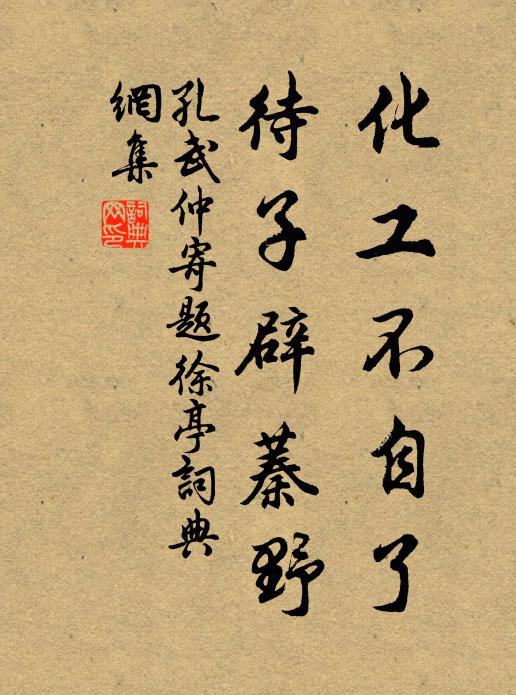 化工不自了
待子辟蓁野
孔武仲寄题徐亭詞典
網集
詞典
网印